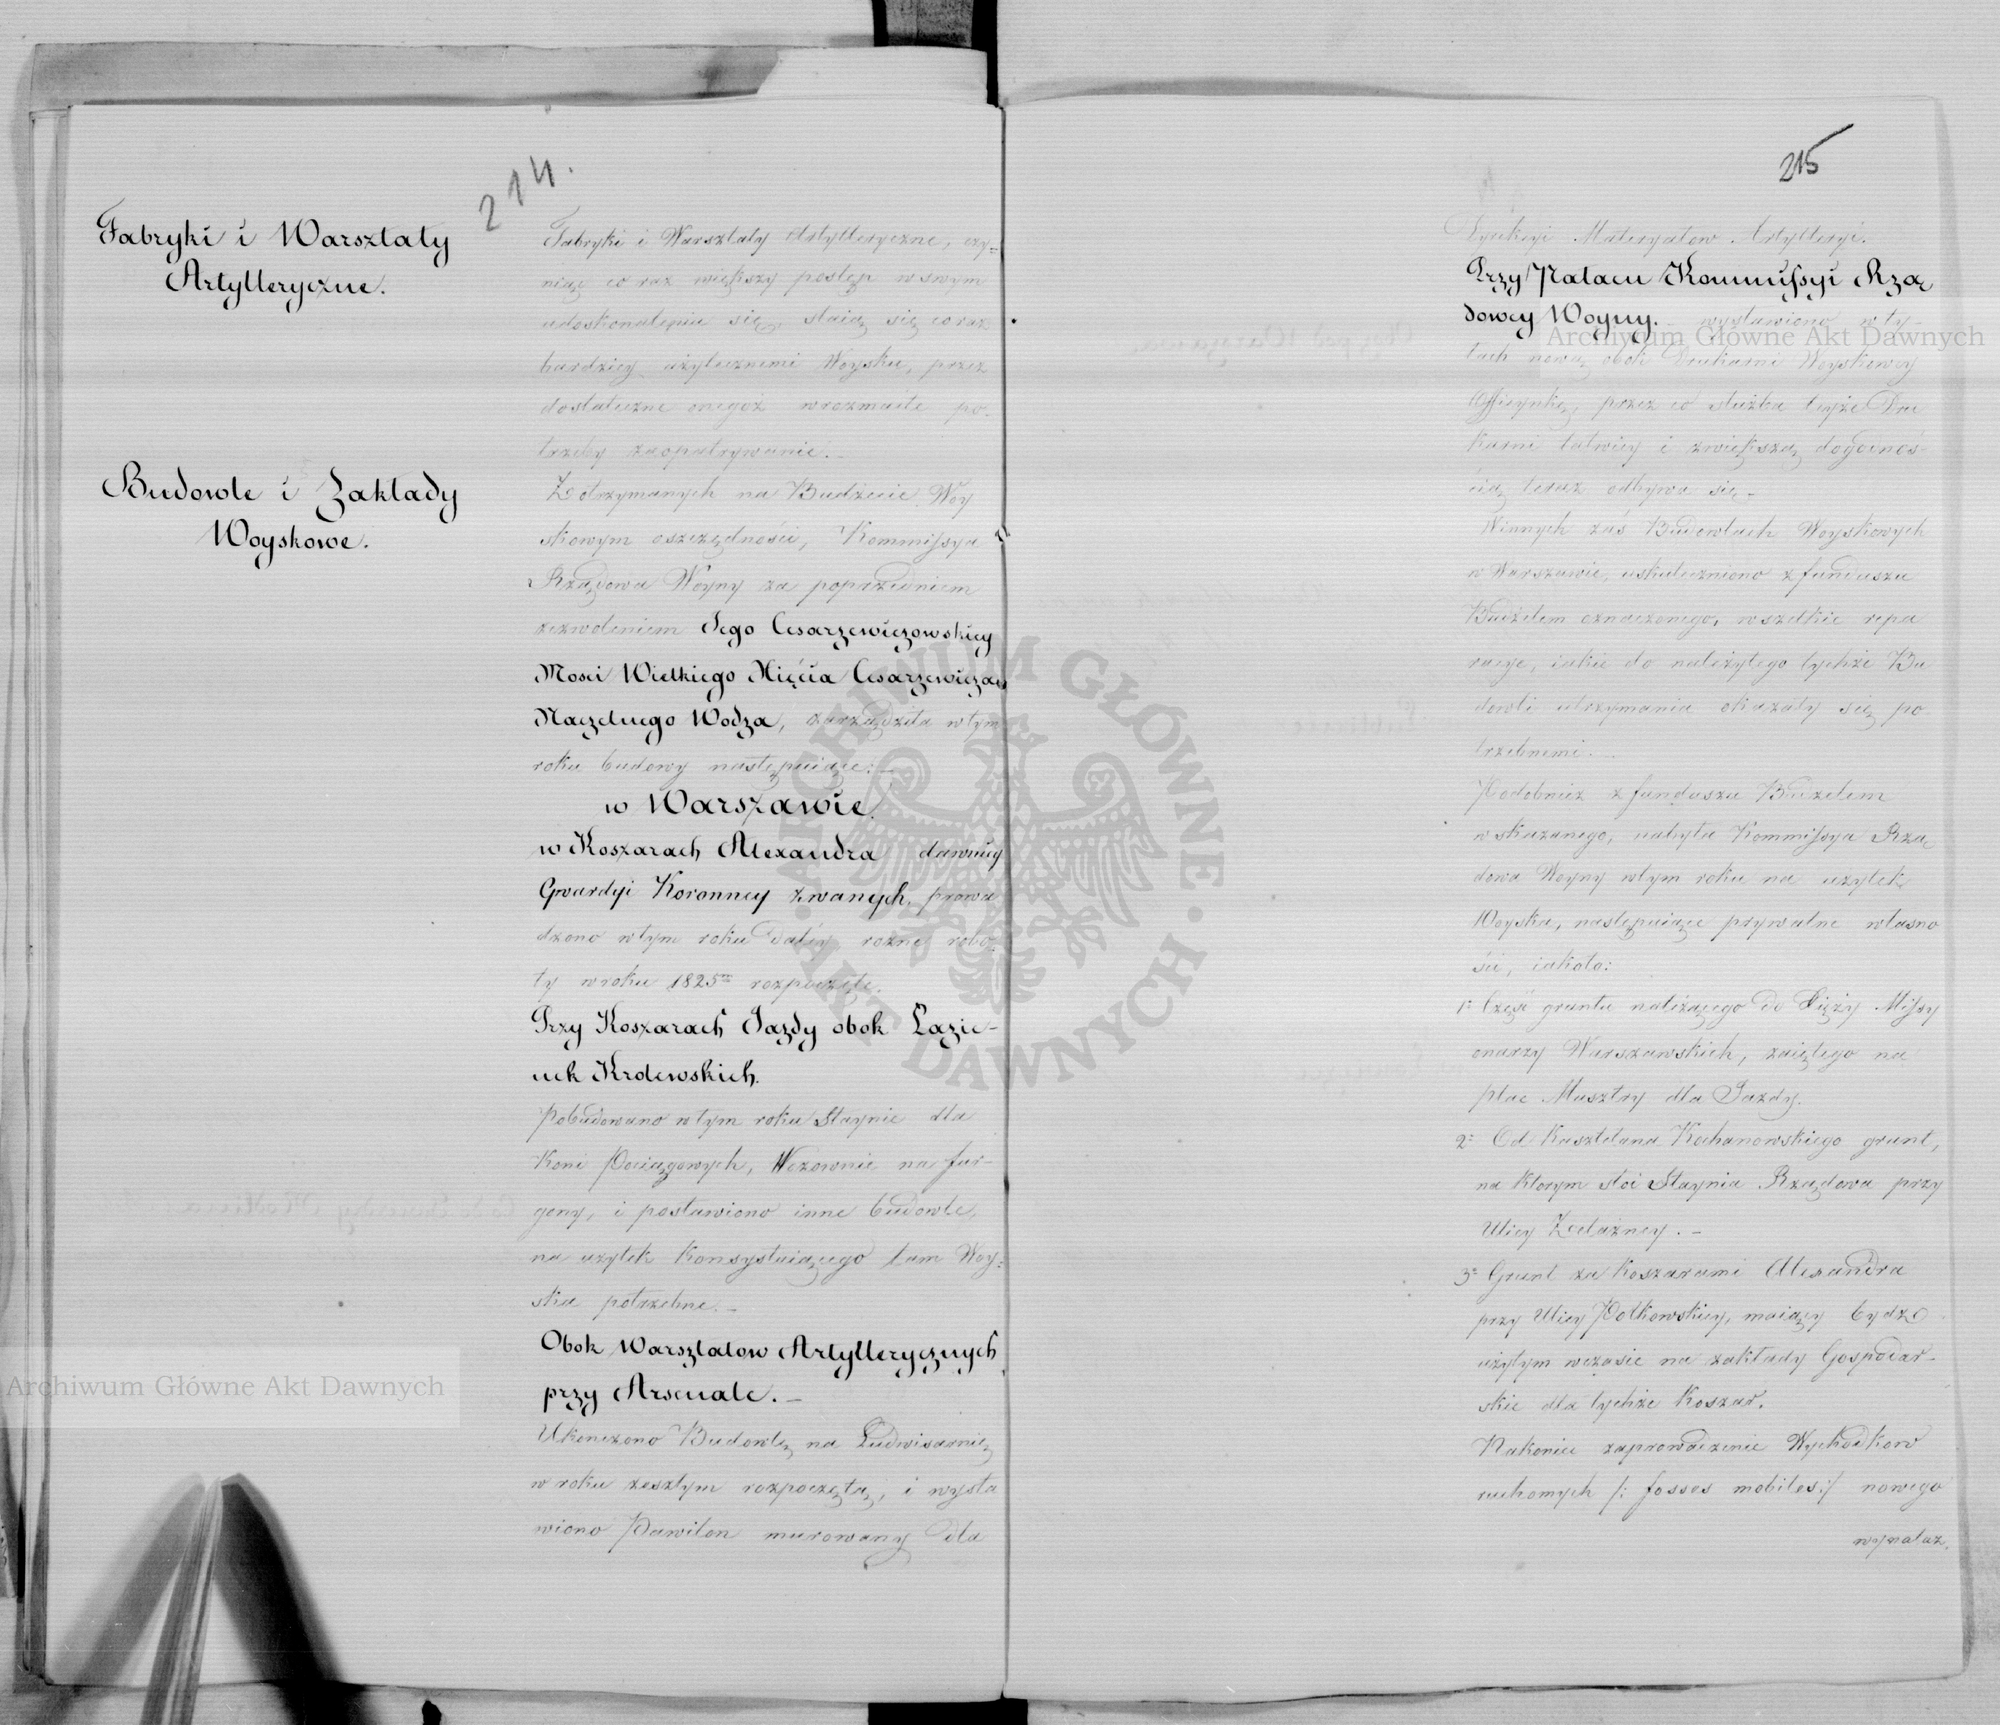 214.
Fabryki i Warsztaty
Artylleryczne.
Fabryki i Warsztaty Artylleryczne, czy=
niąc co raz większy postęp w swym
udoskonaleniu się, staią się coraz
bardziey użytecznemi Woysku, przez
dostateczne onegoż wrozmaite po-
trzeby zaopatrywanie.
Budowle i Zakłady
Woyskowe.
Z otrzymanych na Budżecie Woy
skowym oszczędności, Kommissya
Rządowa Woyny za poprzedniem
zezwoleniem Jego Cesarzewiczowskiey
Mosci Wielkiego Xięcia Cesarzewicza
Naczelnego Wodza, zarządziła w tym
roku budowy następuiące:
w Warszawie.
w Koszarach Alexandra dawniey
Gwardyi Koronney zwanych, prowa
dzono w tym roku daléy rozne robo=
ty w roku 1825m rozpoczęte.
Przy Koszarach Jazdy obok Łazie-
nek Krolewskich.
Pobudowano w tym roku Staynie dla
Koni Pociągowych, Wozownie na fur-
gony, i postawiono inne budowle,
na użytek Konsystuiącego tam Woy=
ska potrzebne.
Obok Warsztatow Artyllerycznych
przy Arsenale.
Ukonczono Budowlę na Ludwisarnię
w roku zeszłym rozpoczętą, i wysta
wiono Pawilon murowany dla
215
Dyrekcyi Materyałow Artylleryi.
Przy Pałacu Kommissyi Rzą
dowey Woyny. wystawiono w ty-
łach nową obok Drukarni Woyskowey
Officynkę, przez co służba teyże Dru
karni łatwiey i zwiększą dogodnoś-
cią teraz odbywa się
Winnych zaś Budowlach Woyskowych
w Warszawie, uskuteczniono z funduszu
Budżetem oznaczonego, wszelkie repa
racye, iakie do należytego tychże Bu
dowli utrzymania okazały się po
trzebnemi.
Podobnież z funduszu Budżetem
wskazanego, nabyła Kommissya Rzą
dowa Woyny w tym roku na użytek
Woyska, następuiące prywatne własno
ści, iakoto:
1: Część gruntu należącego do Xięży Missy
onarzy Warszawskich, zaiętego na
plac Musztry dla Jazdy.
2: Od Kasztelana Kochanowskiego grunt,
na ktorym stoi Staynia Rządowa przy
Ulicy Żelazney.
3: Grunt za Koszarami Alexandra
przy Ulicy Fołkowskiey, maiący bydz
użytym wczasie na zakłady Gospodar-
skie dla tychże Koszar.
Nakoniec zaprowadzenie Wychodkow
ruchomych /: fosses mobiles :/ nowego
wynalaz.
Archiwum Główne Akt Dawnych
Archiwum Główne Akt Dawnych
ARCHIWUM GŁÓWNE AKT DAWNYCH